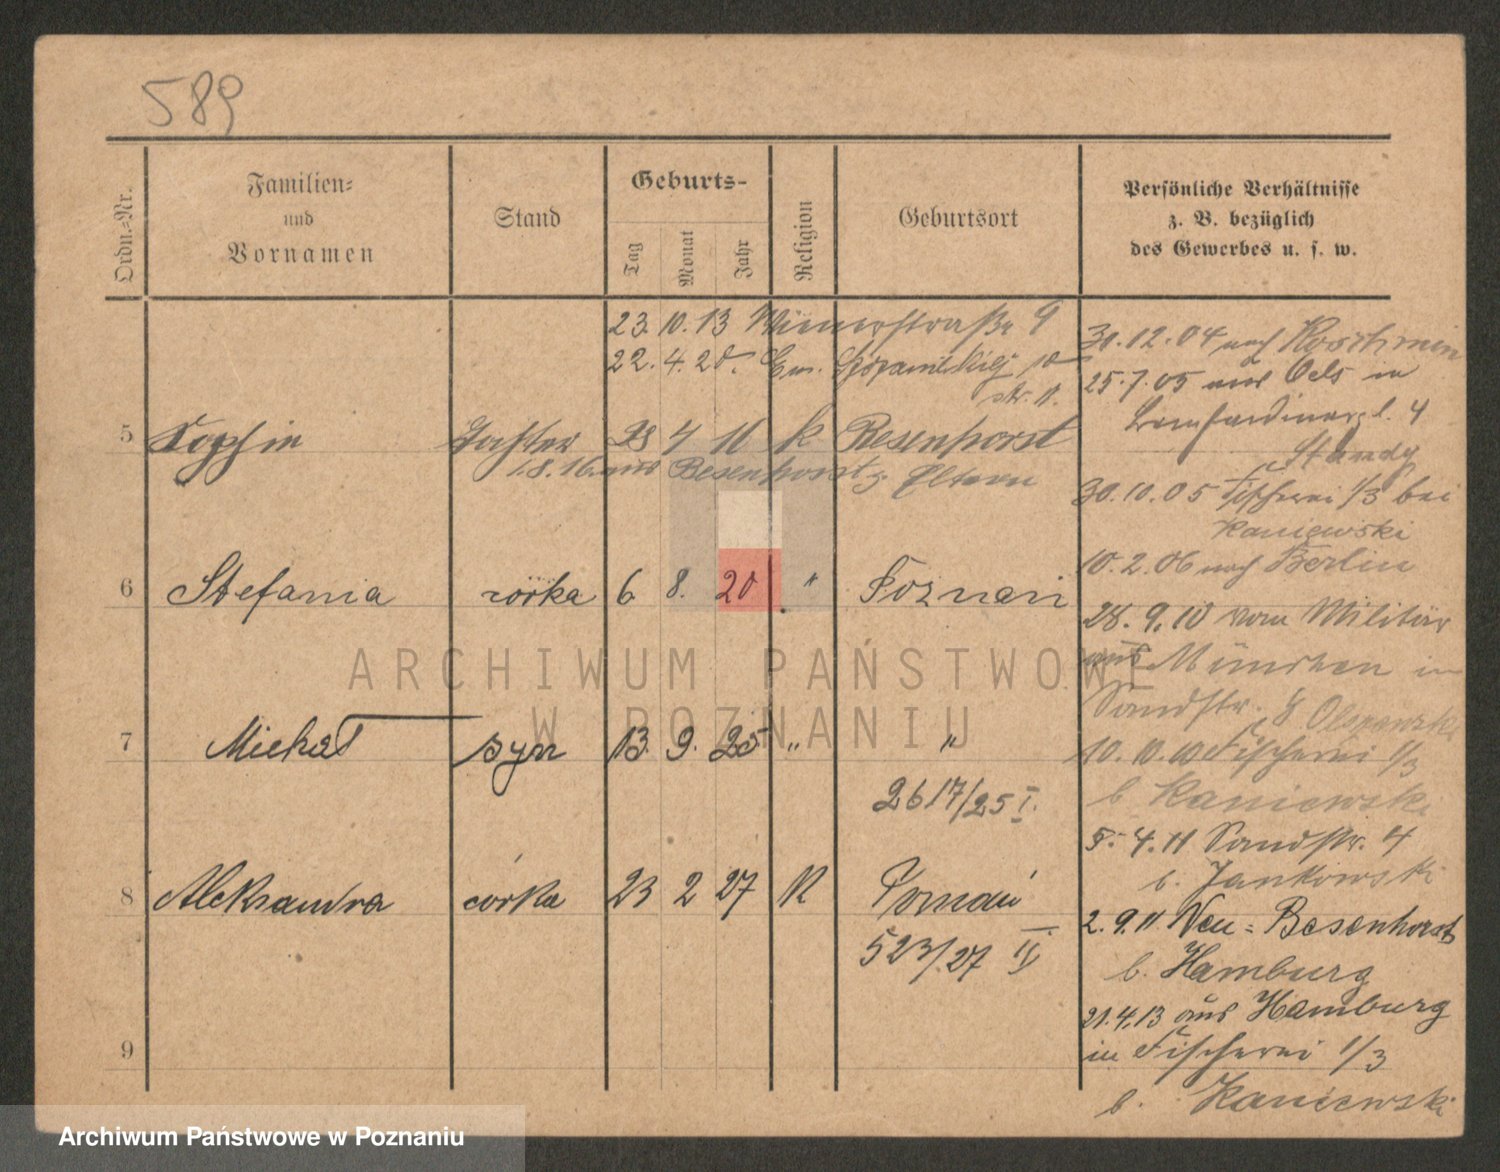 589
Ordn.-Nr.
Familien-
und
Vornamen
Stand
Geburts-
Tag
Monat
Jahr
Religion
Geburtsort
Persönliche Verhältnisse
z. B. bezüglich
des Gewerbes u. s. w.
23. 10. 13 Wienerstraße 9
22. 4. 20.
str. 11.
5 Sophie Tochter 28 4 11 k Besenhorst
1.8.16 aus Besenhorst z. Eltern
6 Stefania córka 6 8. 20 " Poznań
7 Michał syn 13. 9. 25 " "
2617/25 I.
8 Aleksandra córka 23 2 27 K Poznań
523/27 II
9
30.12.04 nach Koschmin
25.7.05 aus Oels in
Bernhardinerpl. 4
30.10.05 Fischerei 1/3 bei
Kaniewski
10.2.06 nach Berlin
28.9.10 vom Militär
aus München in
Sandstr. 8
10.10.10 Fischerei 1/3
b. Kaniewski
5.4.11 Sandstr. 4
b. Jankowski
2.9.11 Neu-Besenhorst
b. Hamburg
21.4.13 aus Hamburg
in Fischerei 1/3
b. Kaniewski
ARCHIWUM PAŃSTWOWE
W POZNANIU
Archiwum Państwowe w Poznaniu